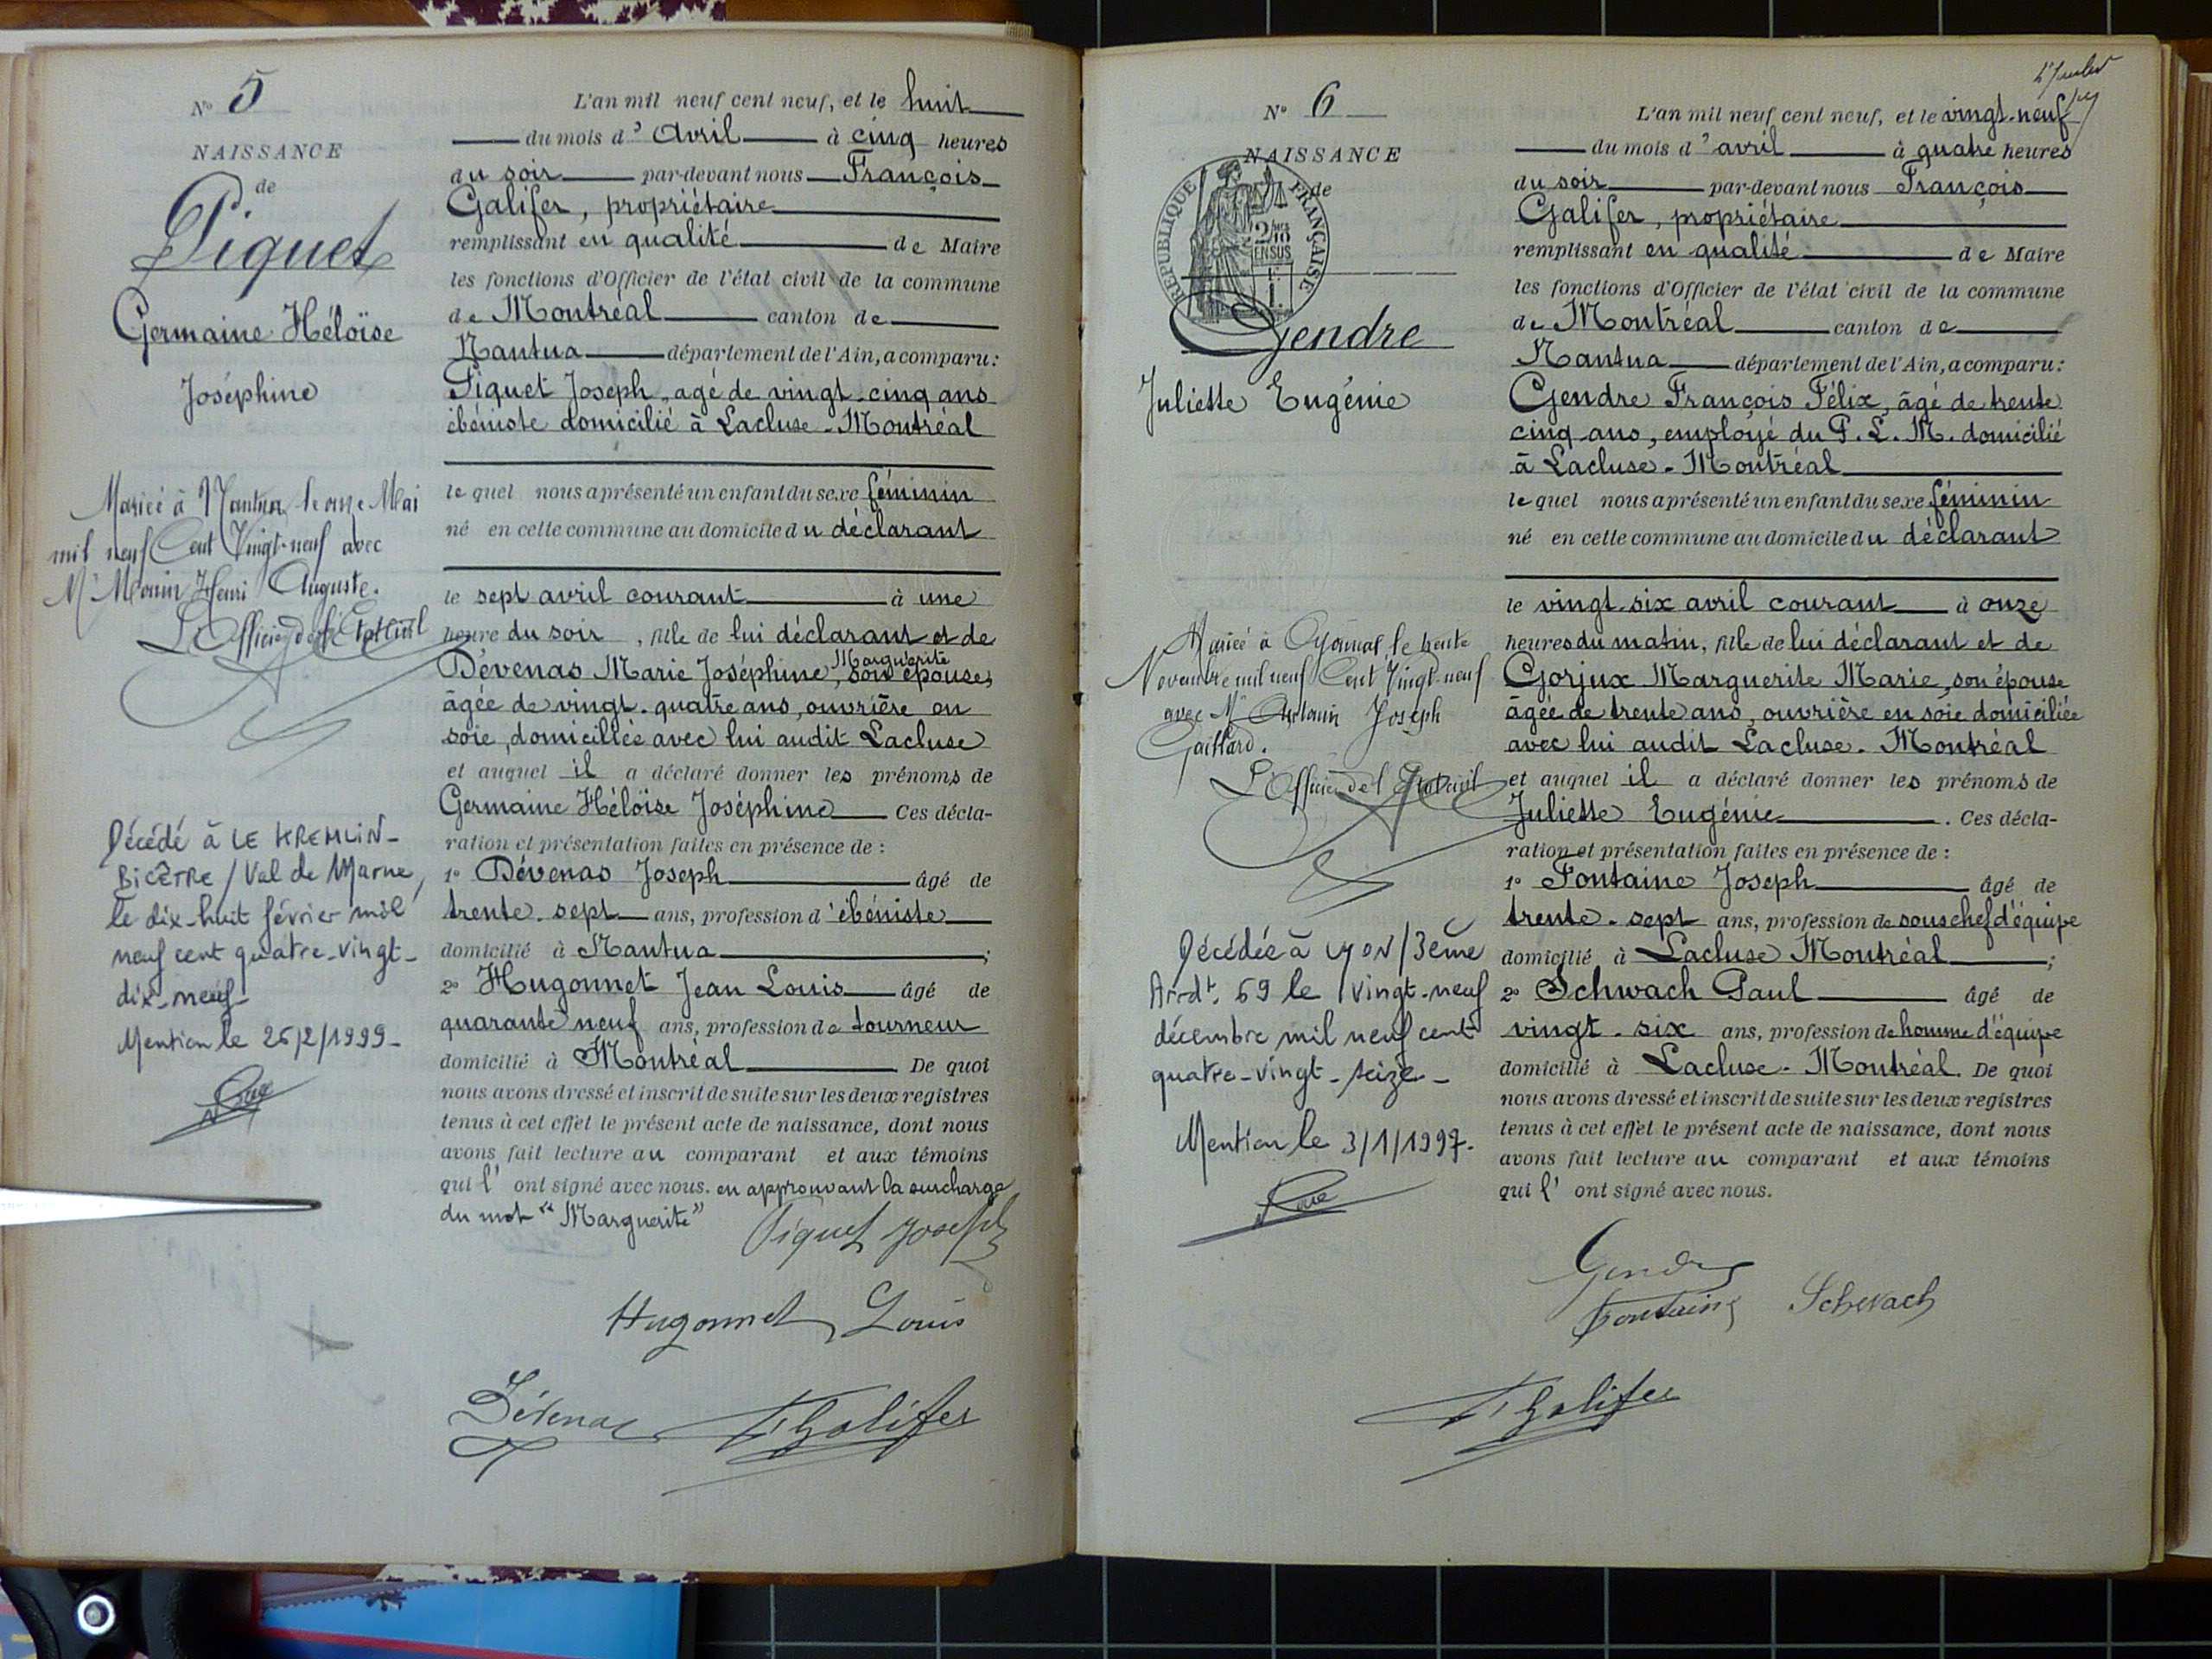 N° 5
NAISSANCE
de
Piquet
Germaine Héloïse
Joséphine
Mariée à Nantua le onze Mai
mil neuf Cent Vingt-neuf avec
Mr Henri Auguste.
L'Officier de l'Etat Civil
Décédé à LE KREMLIN-
BICÊTRE / Val de Marne,
le dix-huit février mil
neuf cent quatre-vingt-
dix-neuf-
Mention le 26/2/1999-
L'an mil neuf cent neuf, et le huit
du mois d'Avril à cinq heures
du soir par-devant nous François
Galifer, propriétaire
remplissant en qualité de Maire
les fonctions d'Officier de l'état civil de la commune
de Montréal canton de
Nantua département de l'Ain, a comparu:
Piquet Joseph, agé de vingt-cinq ans
ébéniste domicilié à Lacluse-Montréal
le quel nous a présenté un enfant du sexe féminin
né en cette commune au domicile du déclarant
le sept avril courant à une
heure du soir, fille de lui déclarant et de
Marguerite
Dévenas Marie Joséphine, son épouse,
âgée de vingt-quatre ans, ouvrière en
soie, domiciliée avec lui audit Lacluse
et auquel il a déclaré donner les prénoms de
Germaine Héloïse Joséphine Ces décla-
ration et présentation faites en présence de :
1° Dévenas Joseph âgé de
trente-sept ans, profession d'ébéniste
domicilié à Nantua ;
2° Hugonnet Jean Louis âgé de
quarante neuf ans, profession de tourneur
domicilié à Montréal De quoi
nous avons dressé et inscrit de suite sur les deux registres
tenus à cet effet le présent acte de naissance, dont nous
avons fait lecture au comparant et aux témoins
qui l'ont signé avec nous. en approuvant la surcharge
du mot "Marguerite" Piquet Joseph
Hugonnet Louis
Dévenas F Galifer
N° 6
NAISSANCE
de
REPUBLIQUE FRANÇAISE
2/10 EN SUS
Gendre
Juliette Eugénie
Mariée à Oyonnax, le trente
Novembre mil neuf Cent Vingt-neuf
avec Mr Antonin Joseph
Gaillard.
L'Officier de l'Etat civil
Décédée à LYON / 3ème
Arrdt. 69 le vingt-neuf
décembre mil neuf cent
quatre-vingt-seize-
Mention le 3/1/1997.
L'an mil neuf cent neuf, et le vingt-neuf
du mois d'avril à quatre heures
du soir par-devant nous François
Galifer, propriétaire
remplissant en qualité de Maire
les fonctions d'Officier de l'état civil de la commune
de Montréal canton de
Nantua département de l'Ain, a comparu:
Gendre François Félix, âgé de trente
cinq ans, employé du P. L. M. domicilié
à Lacluse-Montréal
le quel nous a présenté un enfant du sexe féminin
né en cette commune au domicile du déclarant
le vingt-six avril courant à onze
heures du matin, fille de lui déclarant et de
Gorjux Marguerite Marie, son épouse
âgée de trente ans, ouvrière en soie domiciliée
avec lui audit Lacluse-Montréal
et auquel il a déclaré donner les prénoms de
Juliette Eugénie. Ces décla-
ration et présentation faites en présence de :
1° Fontaine Joseph âgé de
trente-sept ans, profession de sous chef d'équipe
domicilié à Lacluse Montréal ;
2° Schwach Paul âgé de
vingt-six ans, profession de homme d'équipe
domicilié à Lacluse-Montréal. De quoi
nous avons dressé et inscrit de suite sur les deux registres
tenus à cet effet le présent acte de naissance, dont nous
avons fait lecture au comparant et aux témoins
qui l'ont signé avec nous.
Gendre
Fontaine Schwach
F Galifer